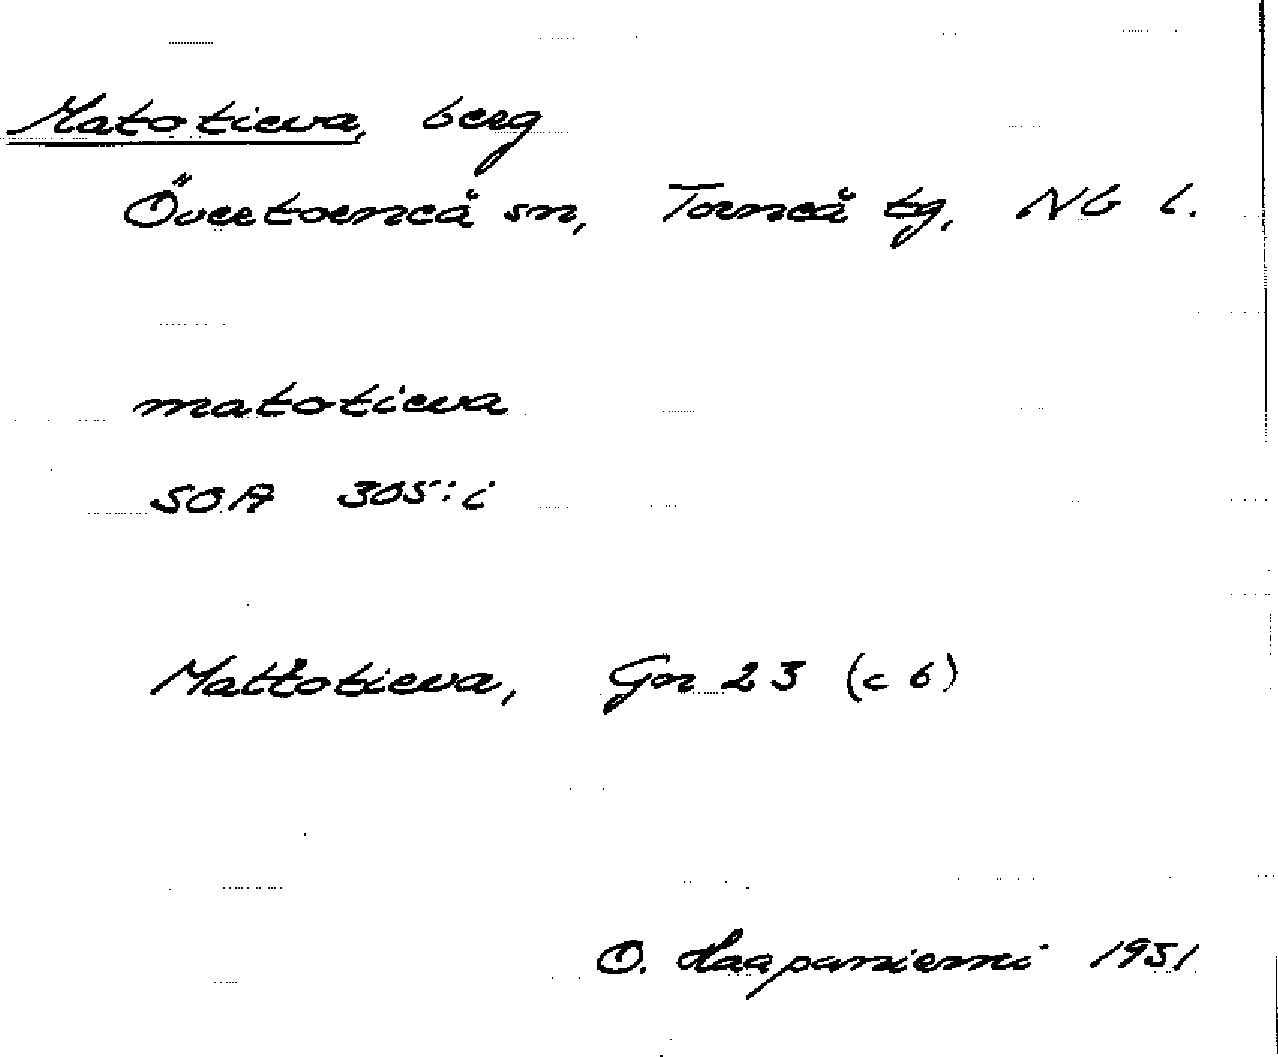 Matotieva, berg
Övertorneå sn, Torneå tg, Nb l.
matotieva
SOA 305:i
Mattotieva, Gn 23 (c 6)
O. Haapaniemi 1951